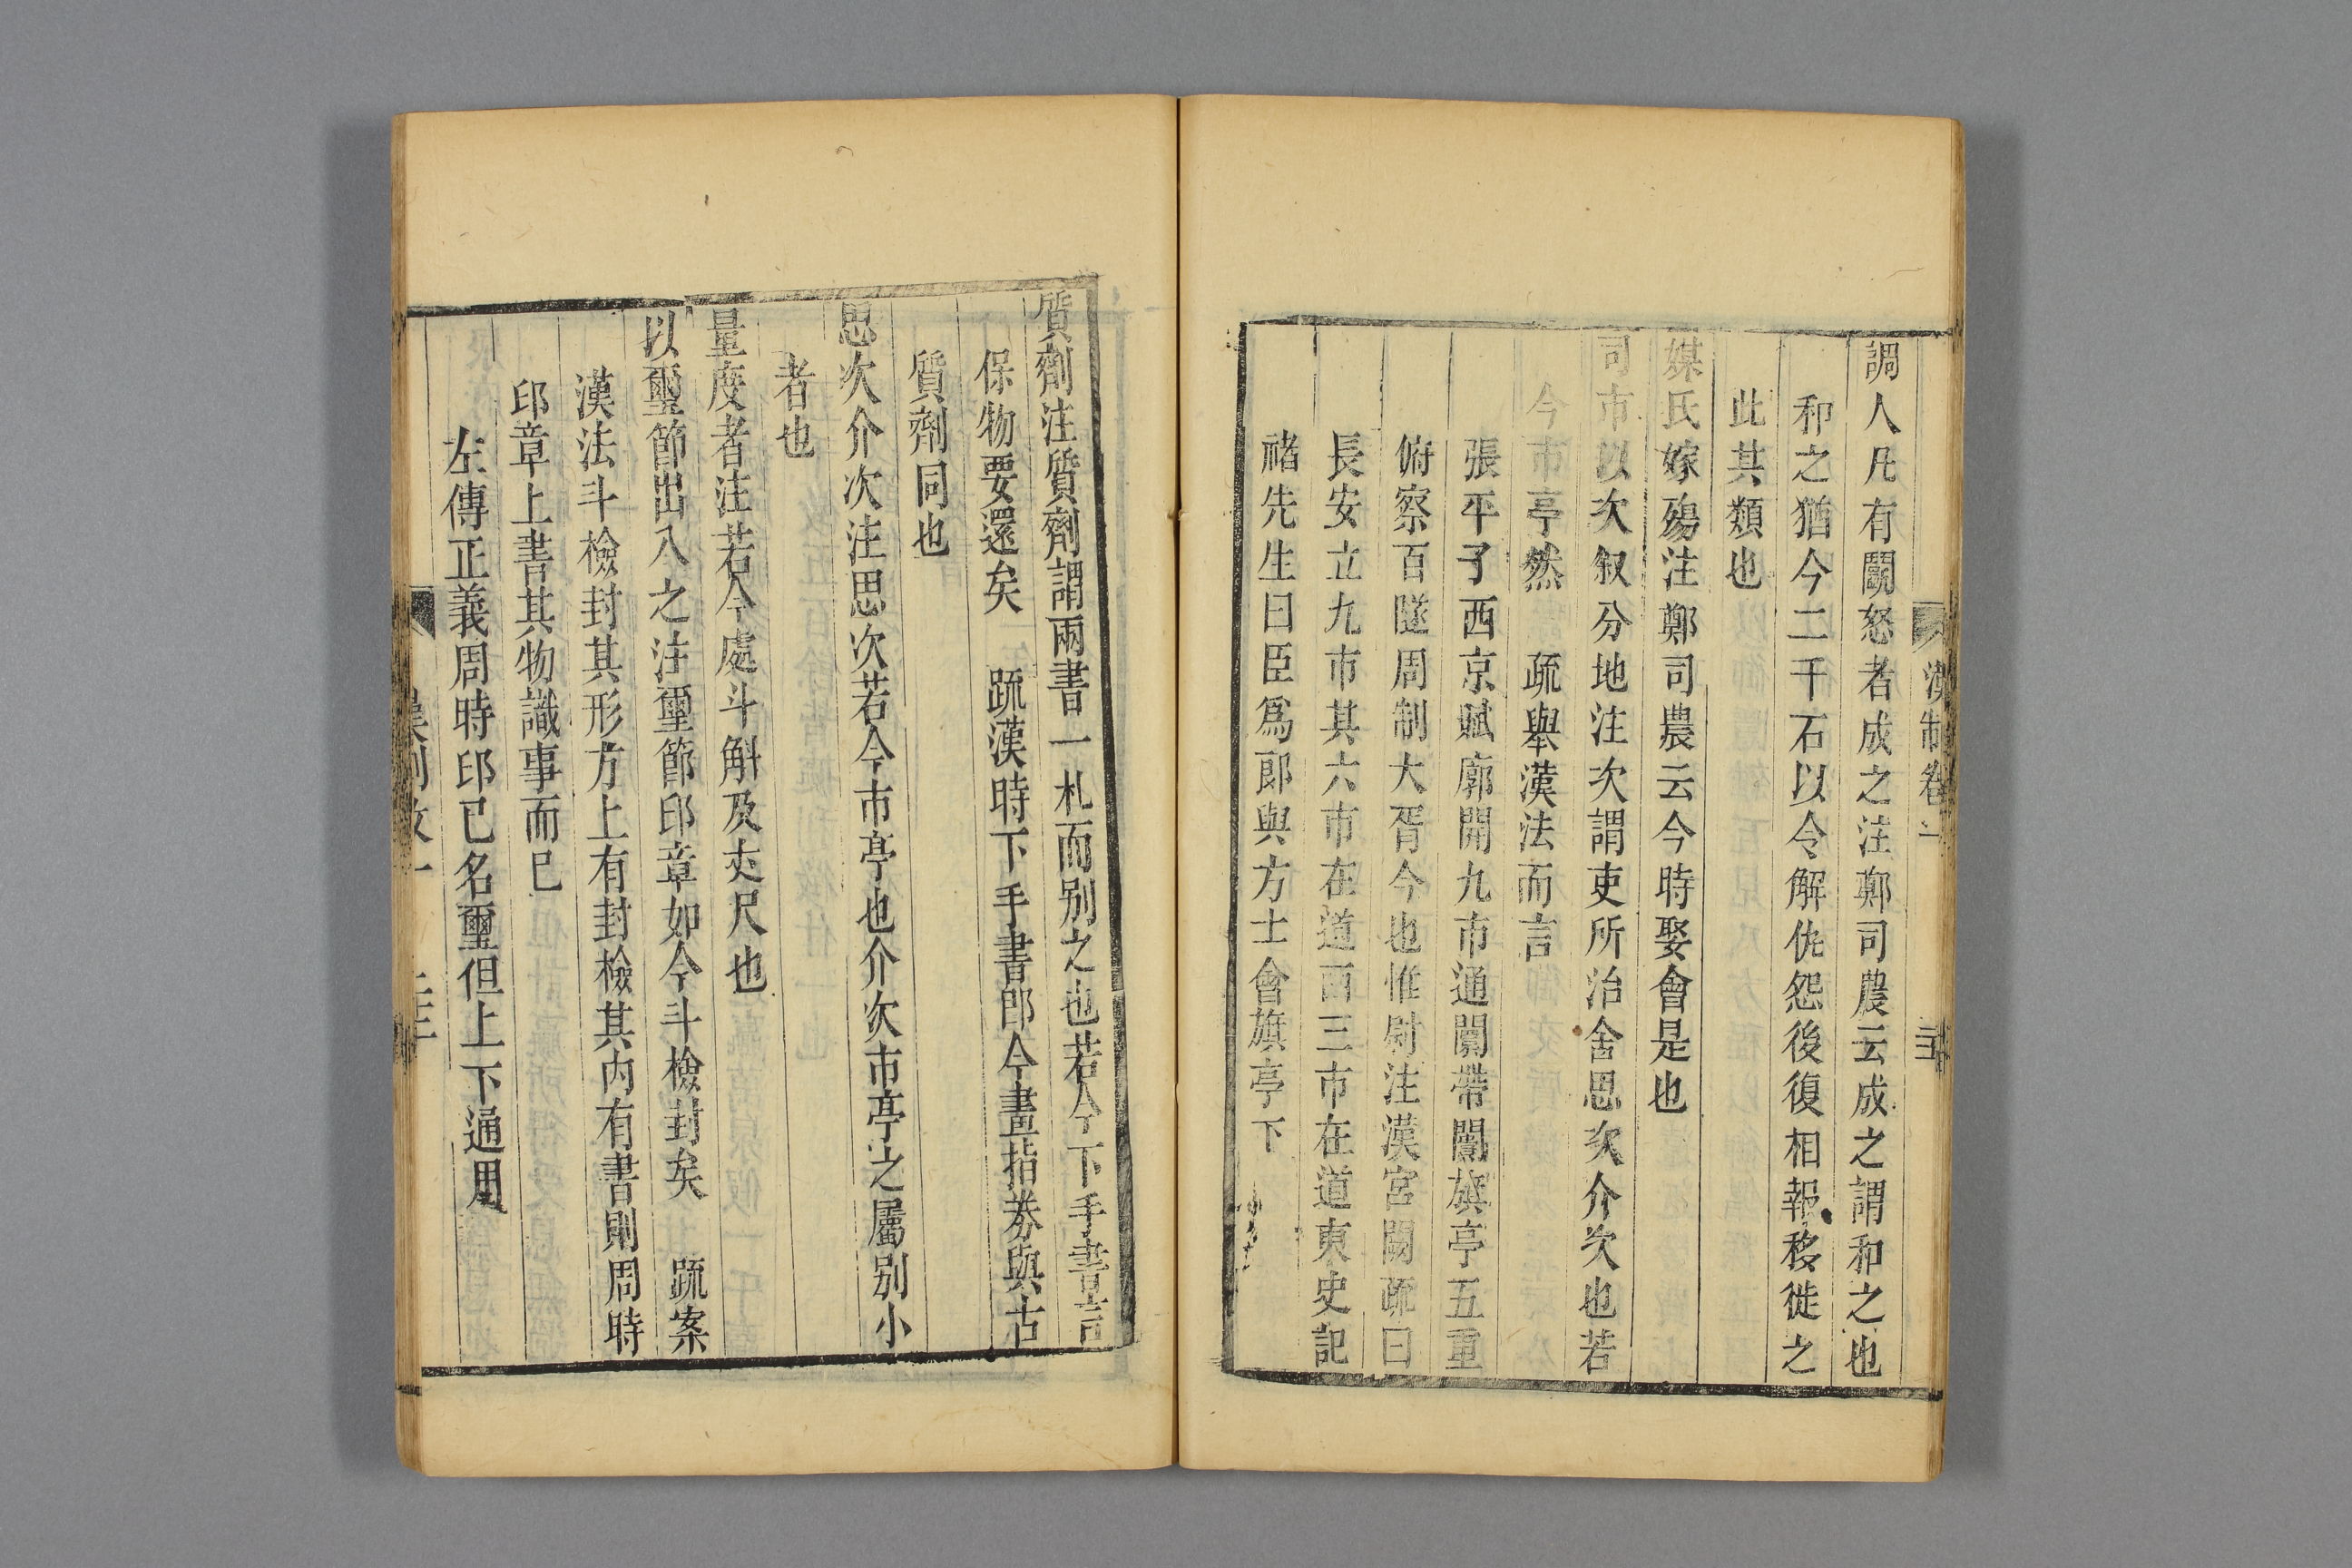 漢制卷一
調人凡有鬬怒者成之注鄭司農云成之謂和之也
和之猶今二千石以令解仇怨後復相報移徙之
此其類也
媒氏嫁殤注鄭司農云今時娶會是也
司市以次叙分地注次謂吏所治舍思次介次也若
今市亭然　疏舉漢法而言
張平子西京賦廓開九市通闤帶闠旗亭五重
俯察百隧周制大胥今也惟尉注漢宮闕疏曰
長安立九市其六市在道西三市在道東史記
褚先生曰臣爲郎與方士會旗亭下
質劑注質劑謂兩書一札而別之也若今下手書言
保物要還矣　疏漢時下手書即今畫指劵與古
質劑同也
思次介次注思次若今市亭也介次市亭之屬別小
者也
量度者注若今處斗斛及丈尺也
以璽節出入之注璽節印章如今斗檢封矣　疏案
漢法斗檢封其形方上有封檢其内有書則周時
印章上書其物識事而已
左傳正義周時印已名璽但上下通用